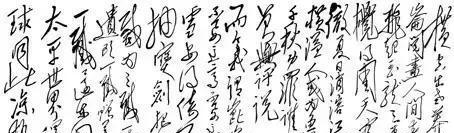 横空出世莽
崑崙阅尽人间
飞起玉龙三
搅得周天寒
彻夏日消溶
横溢人或为鱼
千秋功罪谁
曾与评说
而今我谓崑
不要这高不要
雪安得倚天
抽宝剑把
裁为三截
遗欧一截赠
一截还东国
太平世界环
球同此凉